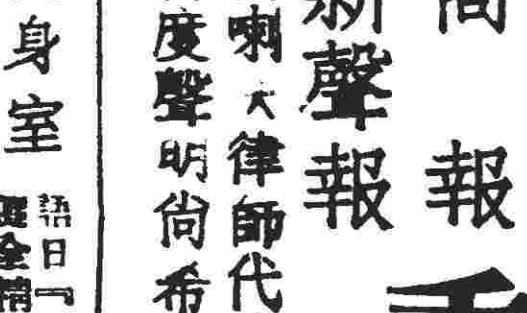 報
新聲報
喇大律師代
度聲明尚希
身室
語日
全精